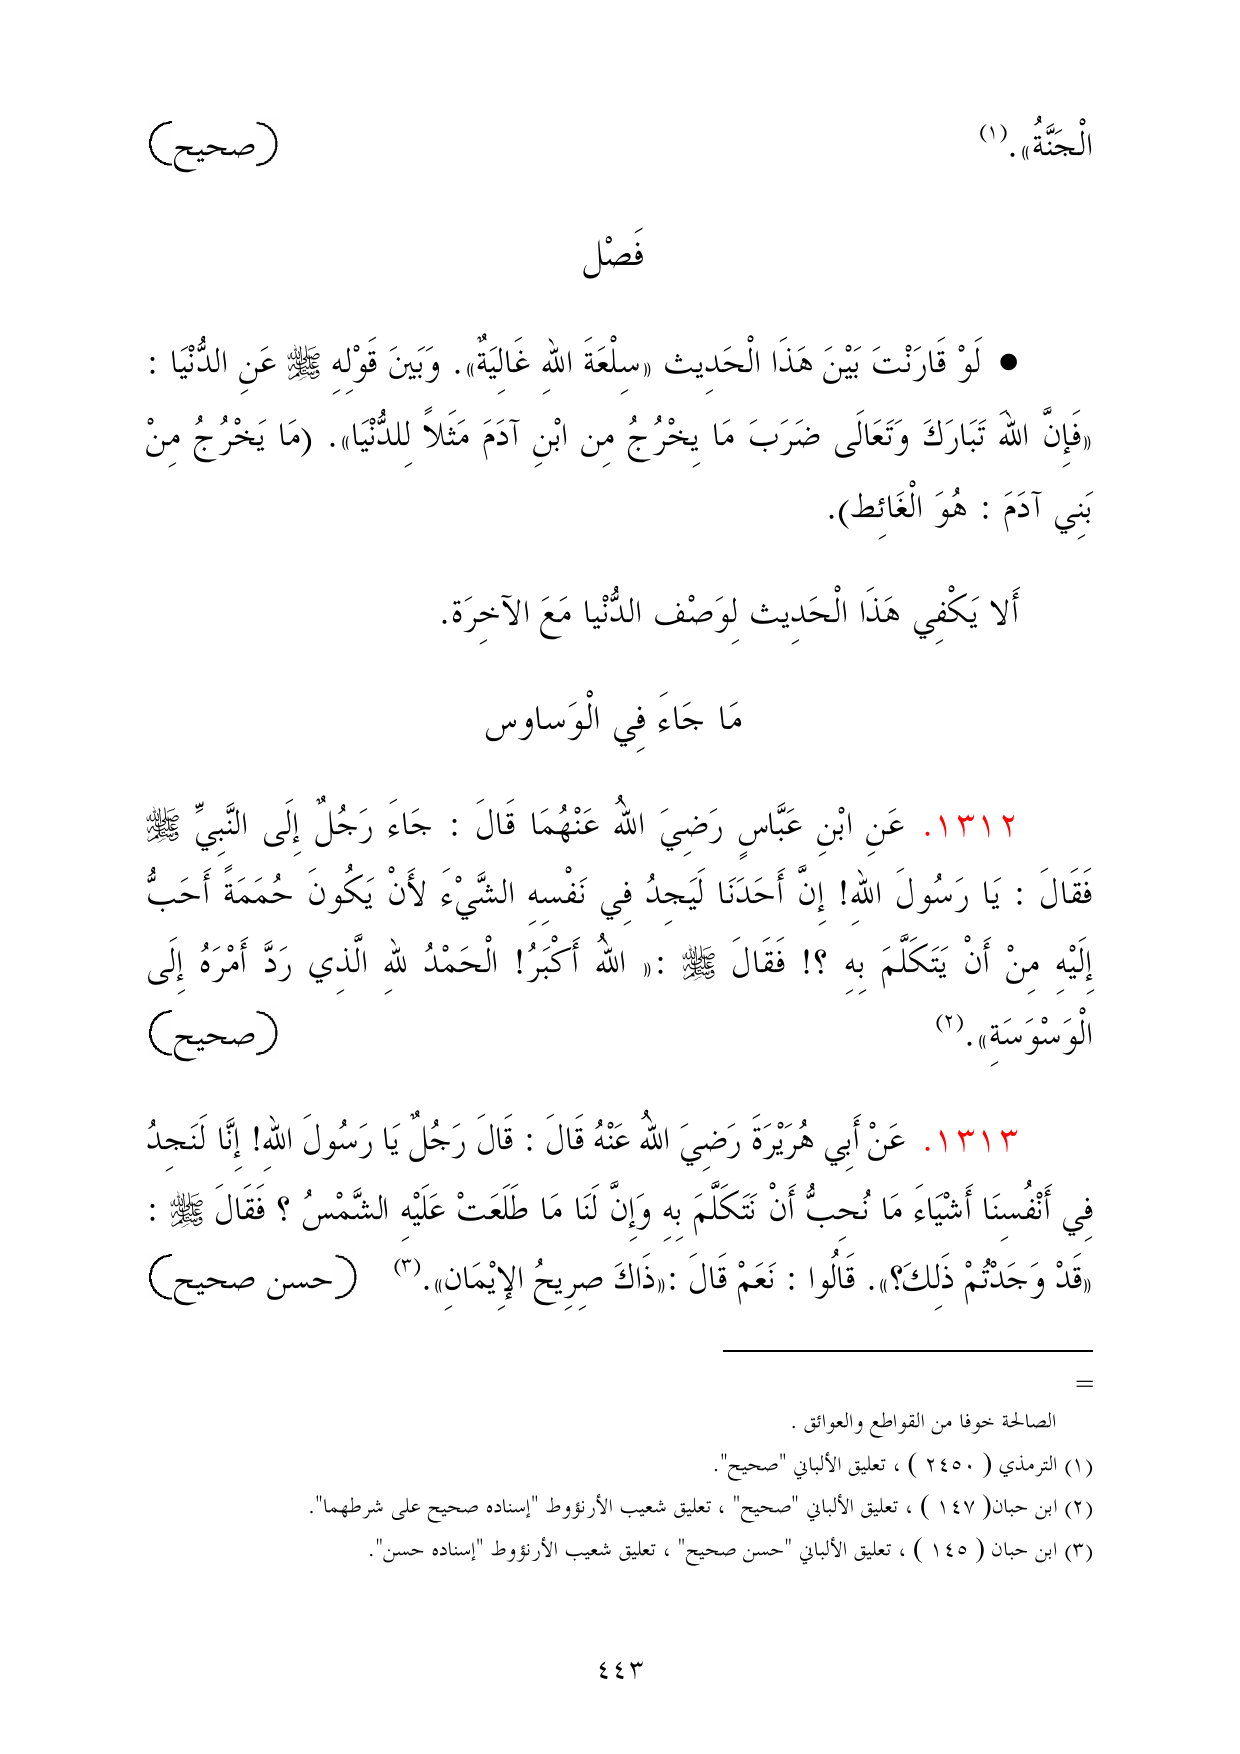 الْجَنَّةُ». (١) (صحيح)
فَصْل
● لَوْ قَارَنْتَ بَيْنَ هَذَا الْحَدِيث «سِلْعَةَ اللهِ غَالِيَةٌ». وَبَينَ قَوْلِهِ ﷺ عَنِ الدُّنْيَا :
«فَإِنَّ اللهَ تَبَارَكَ وَتَعَالَى ضَرَبَ مَا يخْرُجُ مِن ابْنِ آدَمَ مَثَلاً لِلدُّنْيَا». (مَا يَخْرُجُ مِنْ
بَنِي آدَمَ : هُوَ الْغَائِط).
أَلا يَكْفِي هَذَا الْحَدِيث لِوَصْف الدُّنْيا مَعَ الآخِرَة.
مَا جَاءَ فِي الْوَساوس
١٣١٢. عَنِ ابْنِ عَبَّاسٍ رَضِيَ اللهُ عَنْهُمَا قَالَ : جَاءَ رَجُلٌ إِلَى النَّبِيِّ ﷺ
فَقَالَ : يَا رَسُولَ اللهِ! إِنَّ أَحَدَنَا لَيَجِدُ فِي نَفْسِهِ الشَّيْءَ لأَنْ يَكُونَ حُمَمَةً أَحَبُّ
إِلَيْهِ مِنْ أَنْ يَتَكَلَّمَ بِهِ ؟! فَقَالَ ﷺ :« اللهُ أَكْبَرُ! الْحَمْدُ للهِ الَّذِي رَدَّ أَمْرَهُ إِلَى
الْوَسْوَسَةِ». (٢) (صحيح)
١٣١٣. عَنْ أَبِي هُرَيْرَةَ رَضِيَ اللهُ عَنْهُ قَالَ : قَالَ رَجُلٌ يَا رَسُولَ اللهِ! إِنَّا لَنَجِدُ
فِي أَنْفُسِنَا أَشْيَاءَ مَا نُحِبُّ أَنْ نَتَكَلَّمَ بِهِ وَإِنَّ لَنَا مَا طَلَعَتْ عَلَيْهِ الشَّمْسُ ؟ فَقَالَ ﷺ :
«قَدْ وَجَدْتُمْ ذَلِكَ؟». قَالُوا : نَعَمْ قَالَ :«ذَاكَ صِرِيحُ الإِيْمَانِ». (٣) (حسن صحيح)
=
الصالحة خوفا من القواطع والعوائق .
(١) الترمذي ( ٢٤٥٠ ) ، تعليق الألباني "صحيح".
(٢) ابن حبان( ١٤٧ ) ، تعليق الألباني "صحيح" ، تعليق شعيب الأرنؤوط "إسناده صحيح على شرطهما".
(٣) ابن حبان ( ١٤٥ ) ، تعليق الألباني "حسن صحيح" ، تعليق شعيب الأرنؤوط "إسناده حسن".
٤٤٣